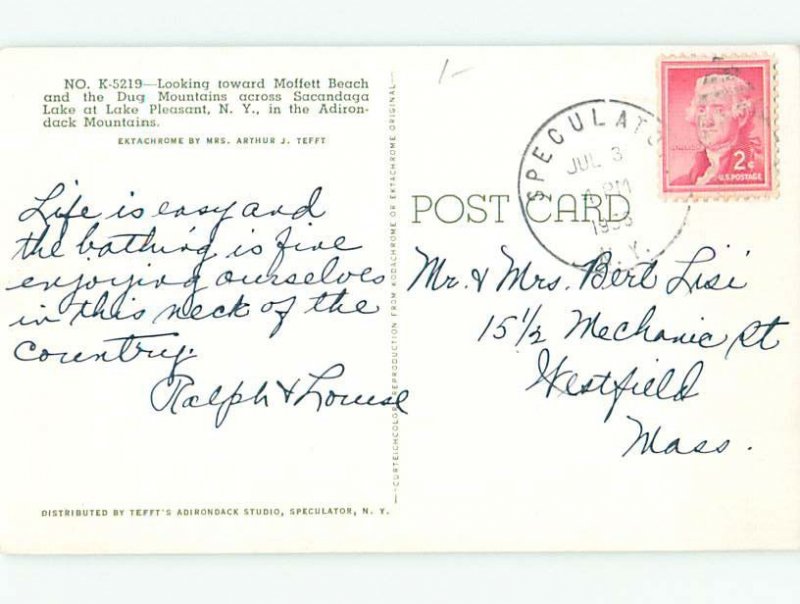 NO. K-5219—Looking toward Moffett Beach
and the Dug Mountains across Sacandaga
Lake at Lake Pleasant, N. Y., in the Adiron-
dack Mountains.
EKTACHROME BY MRS. ARTHUR J. TEFFT
Life is easy and
the bathing is fine
enjoying ourselves
in this neck of the
country.
Ralph & Louise
DISTRIBUTED BY TEFFT'S ADIRONDACK STUDIO, SPECULATOR, N. Y.
CURTEICHCOLOR REPRODUCTION FROM KODACHROME OR EKTACHROME ORIGINAL
1-
POST CARD
SPECULATO
JUL 3
PM
N. Y.
2¢
U.S. POSTAGE
Mr. & Mrs. Bert Lisi
15 1/2 Mechanic St
Westfield
Mass.